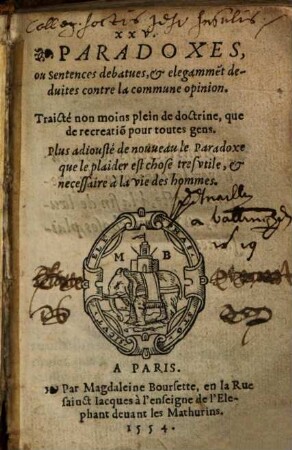 Colleg. Societis Jesu Insulis
XXV.
PARADOXES,
ou Sentences debatues, & elegammēt de-
duites contre la commune opinion.
Traicté non moins plein de doctrine, que
de recreatiō pour toutes gens.
Plus adiousté de nouueau le Paradoxe
que le plaider est chose tresvtile, &
necessaire à la vie des hommes.
1619
M B
A PARIS.
Par Magdaleine Boursette, en la Rue
sainct Iacques à l'enseigne de l'Ele-
phant deuant les Mathurins.
1554.